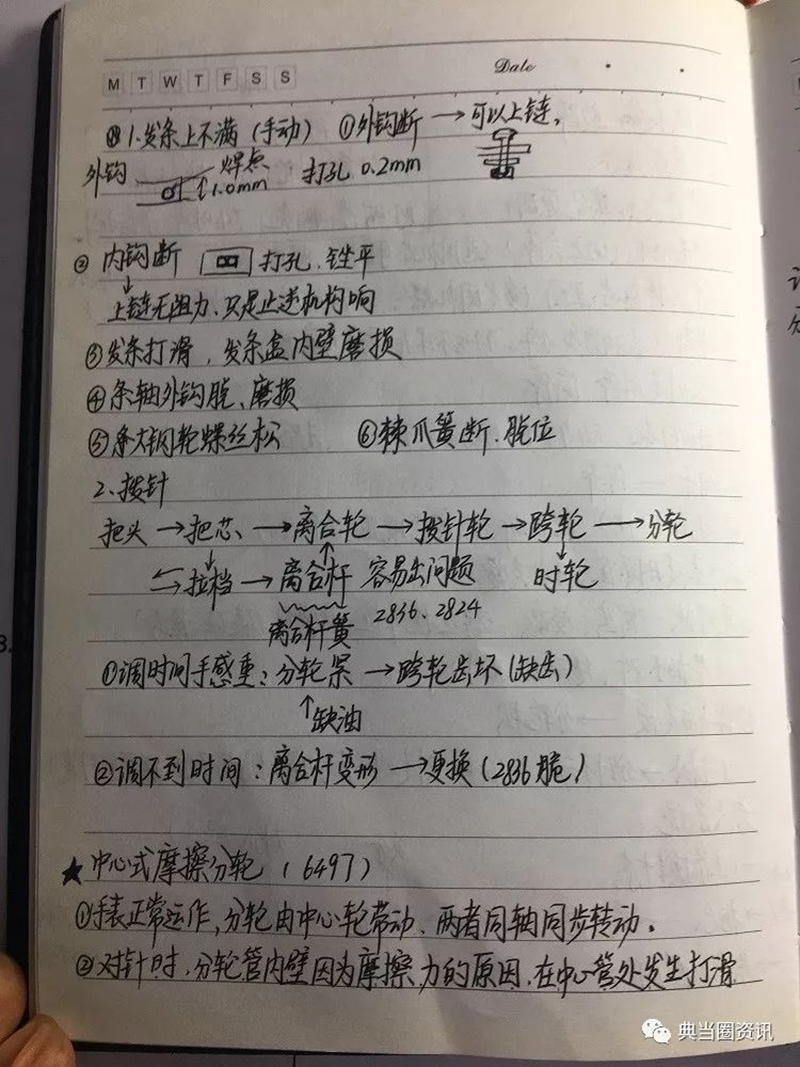 M T W T F S S Date
1.发条上不满(手动) ①外钩断→可以上链,
外钩 焊点 1.0mm 打孔 0.2mm
② 内钩断 打孔.锉平
↓
上链无阻力、只是止逆机构响
③发条打滑,发条盒内壁磨损
④条轴外钩脱、磨损
⑤条大钢轮螺丝松 ⑥棘爪簧断.脱位
2.拨针
把头→把芯→离合轮→拨针轮→跨轮→分轮
拉档→离合杆 容易出问题 时轮
离合杆簧 2836、2824
①调时间手感重:分轮呆→跨轮齿坏(缺齿)
↑缺油
②调不到时间:离合杆变形→更换(2836脆)
★中心式摩擦分轮(6497)
①手表正常运作,分轮由中心轮带动、两者同轴同步转动。
②对针时,分轮管内壁因为摩擦力的原因,在中心管处发生打滑
典当圈资讯